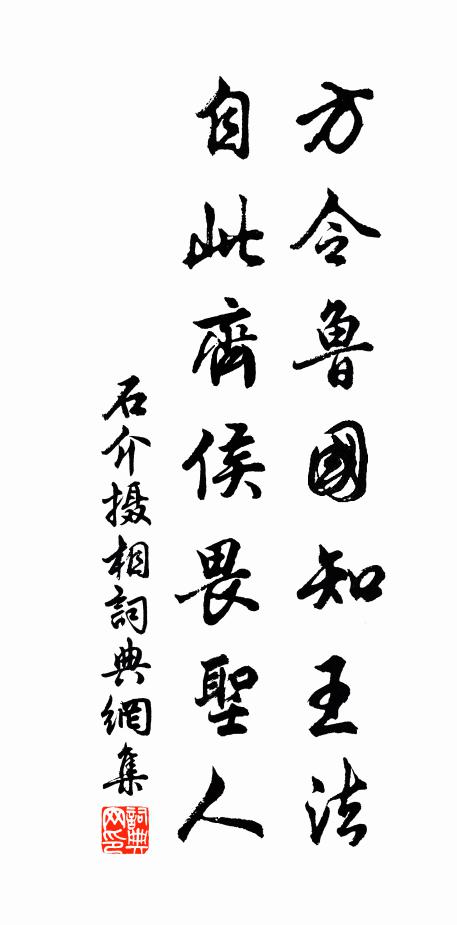 方令魯國知王法
自此齊侯畏聖人
石介摄相詞典網集
詞典
网印